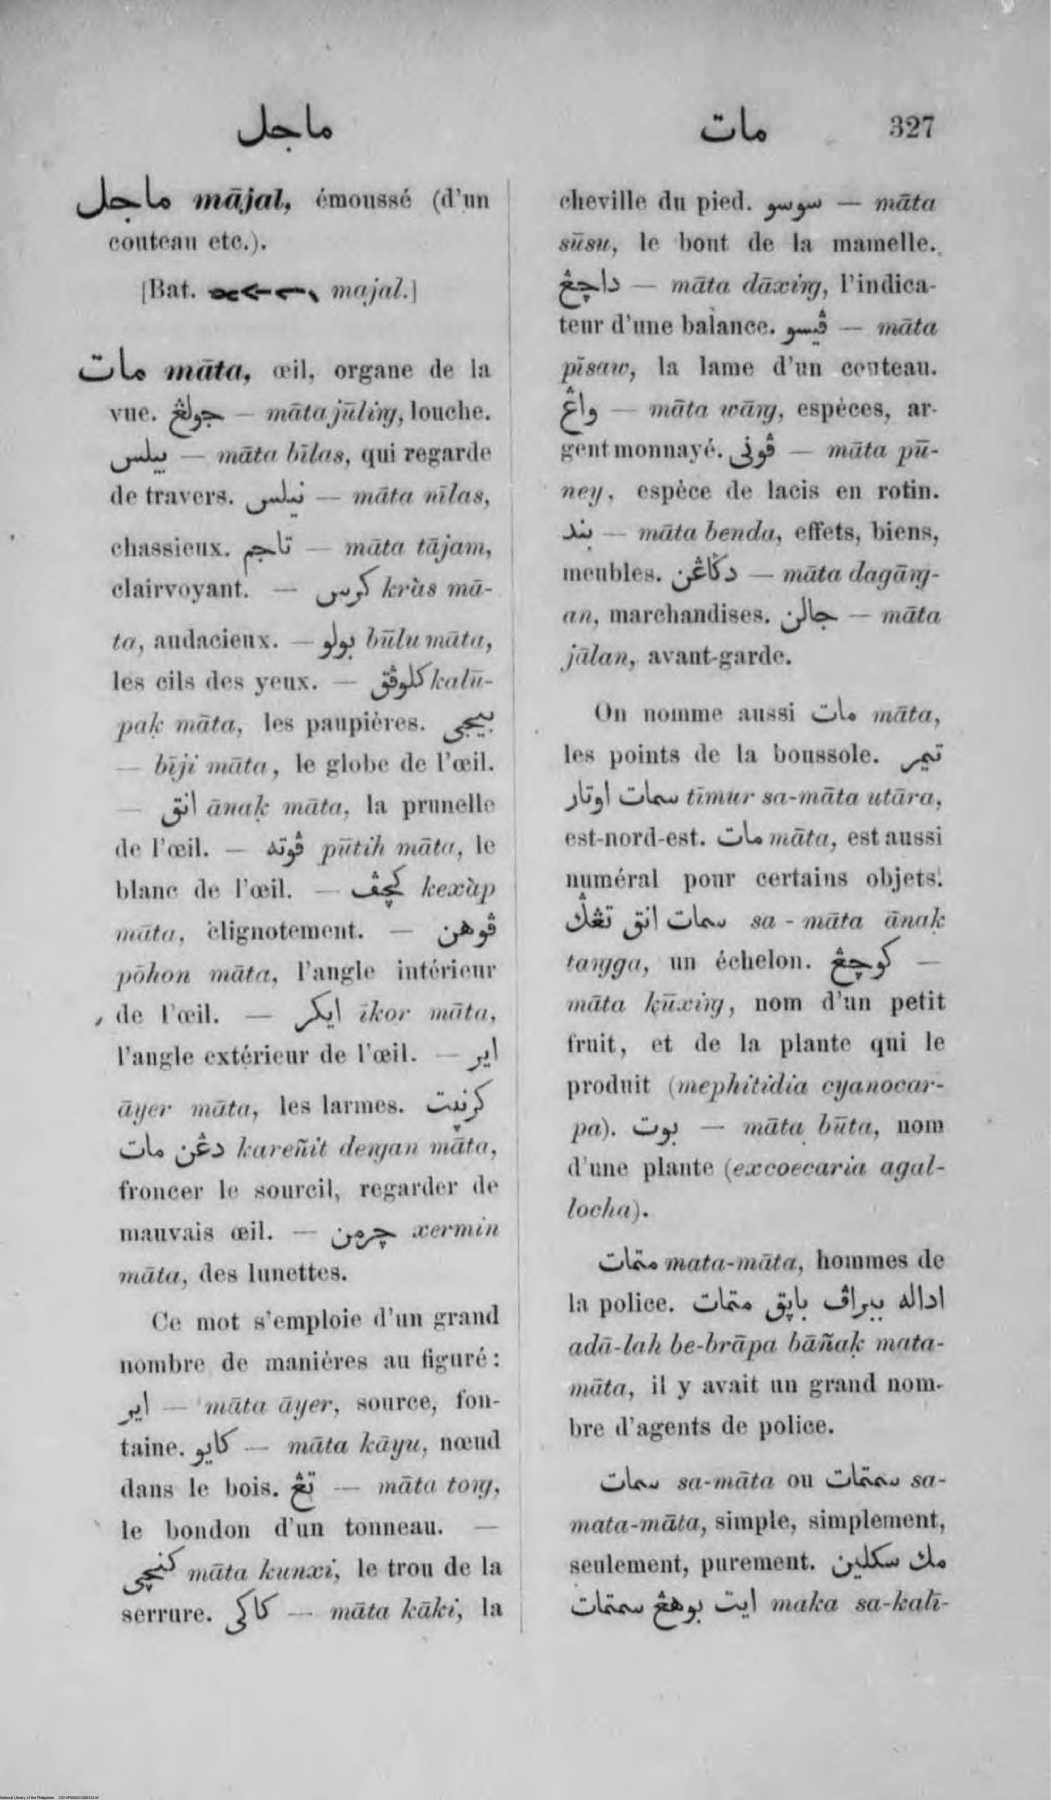 ماجل
مات 327
ماجل mājal, émoussé (d'un
couteau etc.).
[Bat. majal.]
مات māta, œil, organe de la
vue. جولڠ — māta jūliṅg, louche.
بيلس — māta bīlas, qui regarde
de travers. نيلس — māta nīlas,
chassieux. تاجم — māta tājam,
clairvoyant. — كرس kràs mā-
ta, audacieux. — بولو būlu māta,
les cils des yeux. — كلوڤق kalū-
paḳ māta, les paupières. بيجي
— bīji māta, le globe de l'œil.
— انق ānaḳ māta, la prunelle
de l'œil. — ڤوته pūtih māta, le
blanc de l'œil. — كچڤ kexàp
māta, clignotement. — ڤوهن
pōhon māta, l'angle intérieur
de l'œil. — ايكر īkor māta,
l'angle extérieur de l'œil. — اير
āyer māta, les larmes. كرنيت
دڠن مات kareñit deṅgan māta,
froncer le sourcil, regarder de
mauvais œil. — چرمن xermin
māta, des lunettes.
Ce mot s'emploie d'un grand
nombre de manières au figuré:
اير — māta āyer, source, fon-
taine. كايو — māta kāyu, nœud
dans le bois. تڠ — māta toṅg,
le bondon d'un tonneau. —
كنچي māta kunxi, le trou de la
serrure. كاكي — māta kāki, la
cheville du pied. سوسو — māta
sūsu, le bout de la mamelle.
داچڠ — māta dāxiṅg, l'indica-
teur d'une balance. ڤيسو — māta
pīsaw, la lame d'un couteau.
واڠ — māta wāṅg, espèces, ar-
gent monnayé. ڤوني — māta pū-
ney, espèce de lacis en rotin.
بند — māta benda, effets, biens,
meubles. دڬاڠن — māta dagāṅg-
an, marchandises. جالن — māta
jālan, avant-garde.
On nomme aussi مات māta,
les points de la boussole. تيمر
سمات اوتار tīmur sa-māta utāra,
est-nord-est. مات māta, est aussi
numéral pour certains objets.
سمات انق تڠڬ sa-māta ānaḳ
taṅgga, un échelon. كوچڠ —
māta ḳūxiṅg, nom d'un petit
fruit, et de la plante qui le
produit (mephitidia cyanocar-
pa). بوت — māta būta, nom
d'une plante (excoecaria agal-
locha).
متمات mata-māta, hommes de
la police. اداله ببراڤ باڽق متمات
adā-lah be-brāpa bāñaḳ mata-
māta, il y avait un grand nom-
bre d'agents de police.
سمات sa-māta ou سمتمات sa-
mata-māta, simple, simplement,
seulement, purement. مك سكلين
ايت بوهڠ سمتمات maka sa-kalī-